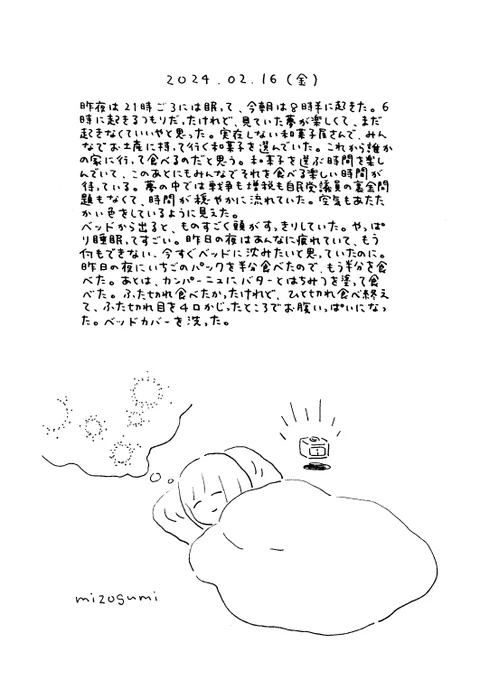 2024.02.16(金)
昨夜は21時ごろには眠って、今朝は8時半に起きた。6
時に起きるつもりだったけれど、見ていた夢が楽しくて、まだ
起きなくていいやと思った。実在しない和菓子屋さんで、みん
なでお土産に持って行く和菓子を選んでいた。これから誰か
の家に行って食べるのだと思う。和菓子を選ぶ時間を楽し
んでいて、このあとにもみんなでそれを食べる楽しい時間が
待っている。夢の中では戦争も増税も自民党議員の裏金問
題もなくて、時間が穏やかに流れていた。空気もあたた
かい色をしているように見えた。
ベッドから出ると、ものすごく頭がすっきりしていた。やっぱ
り睡眠ってすごい。昨日の夜はあんなに疲れていて、もう
何もできない、今すぐベッドに沈みたいと思っていたのに。
昨日の夜にいちごのパックを半分食べたので、もう半分を食
べた。あとは、カンパーニュにバターとはちみつを塗って食
べた。ふた切れ食べたかったけれど、ひと切れ食べ終え
て、ふた切れ目を4口かじったところでお腹いっぱいになっ
た。ベッドカバーを洗った。
mizogumi